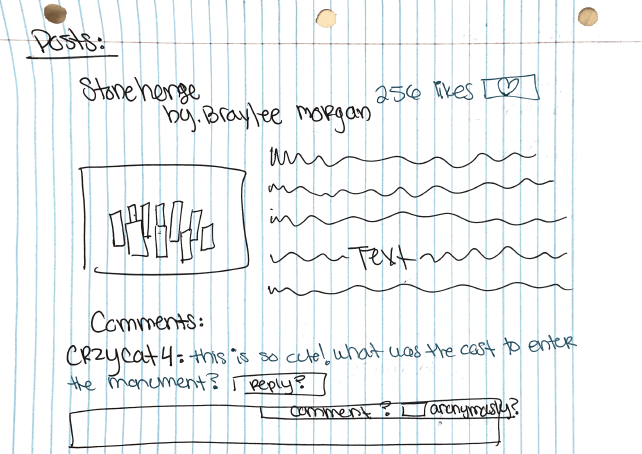 Posts:
Stonehenge
by: Braylee Morgan
256 likes
Text
Comments:
CRzyCat4: this is so cute! what was the cost to enter
the monument? reply?
comment? anonymously?